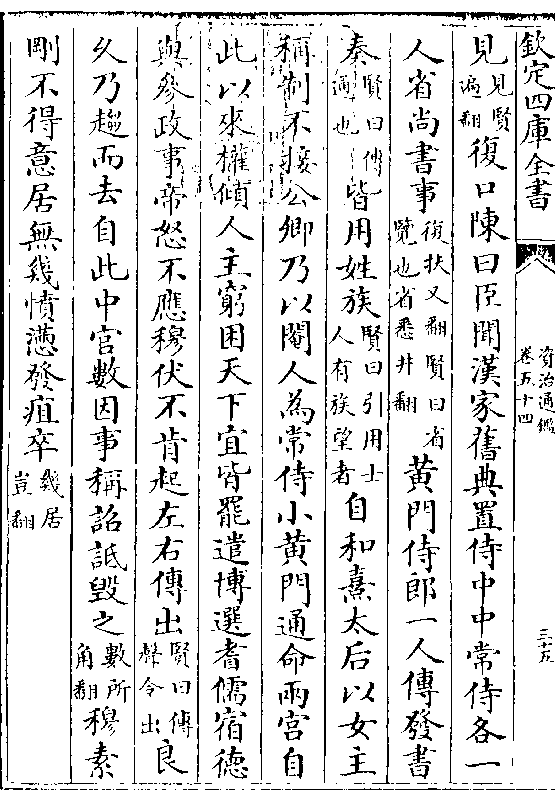 欽定四庫全書
資治通鑑
卷五十四
三十五
見見賢遍翻復口陳曰臣聞漢家舊典置侍中中常侍各一
人省尚書事復扶又翻賢曰省覽也省悉井翻黄門侍郎一人傳發書
奏賢曰傳通也皆用姓族賢曰引用士人有族望者自和熹太后以女主
稱制不接公卿乃以閹人為常侍小黄門通命兩宫自
此以來權傾人主窮困天下宜皆罷遣博選耆儒宿德
與參政事帝怒不應穆伏不肯起左右傳出賢曰傳聲令出良
久乃趨而去自此中官數因事稱詔詆毀之數所角翻穆素
剛不得意居無幾憤懣發疽卒幾居豈翻